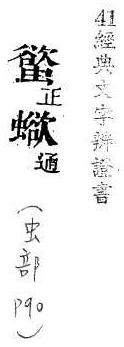 41經典文字辨證書
正
通
(虫部 P90)